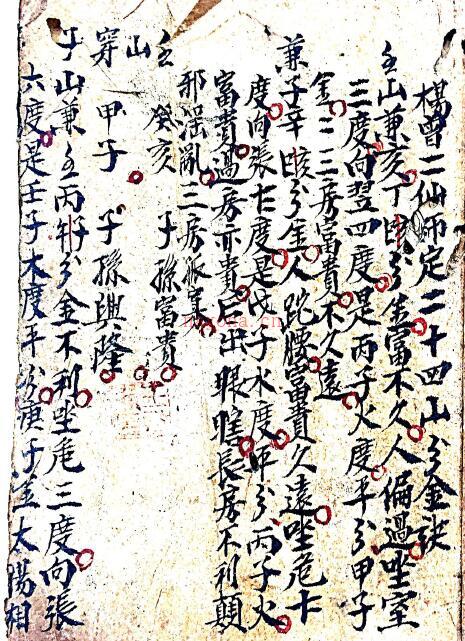 楊曾二仙师定二十四山分金诀
壬山兼亥丁亥分金富不久人偏過坐室
三度向翌四度是丙子火度平分甲子
金二三房富貴不久遠
兼子辛亥分金人跎腰富貴久遠坐危十
度向張七度是戊子水度平分丙子火
富貴過房亦貴后出眼瞎長房不利顛
邪淫亂三房
壬 癸亥 子孫富貴
山
穿 甲子 子孫興隆
子山兼壬丙子分金不利坐危三度向張
六度是壬子木度平分庚子土太陽相